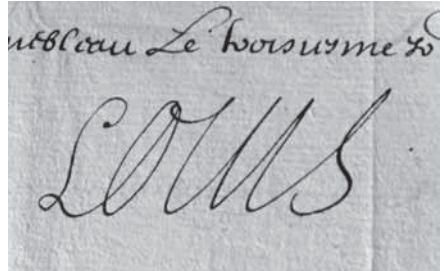 nebleau Le troisiesme Jo
Louis